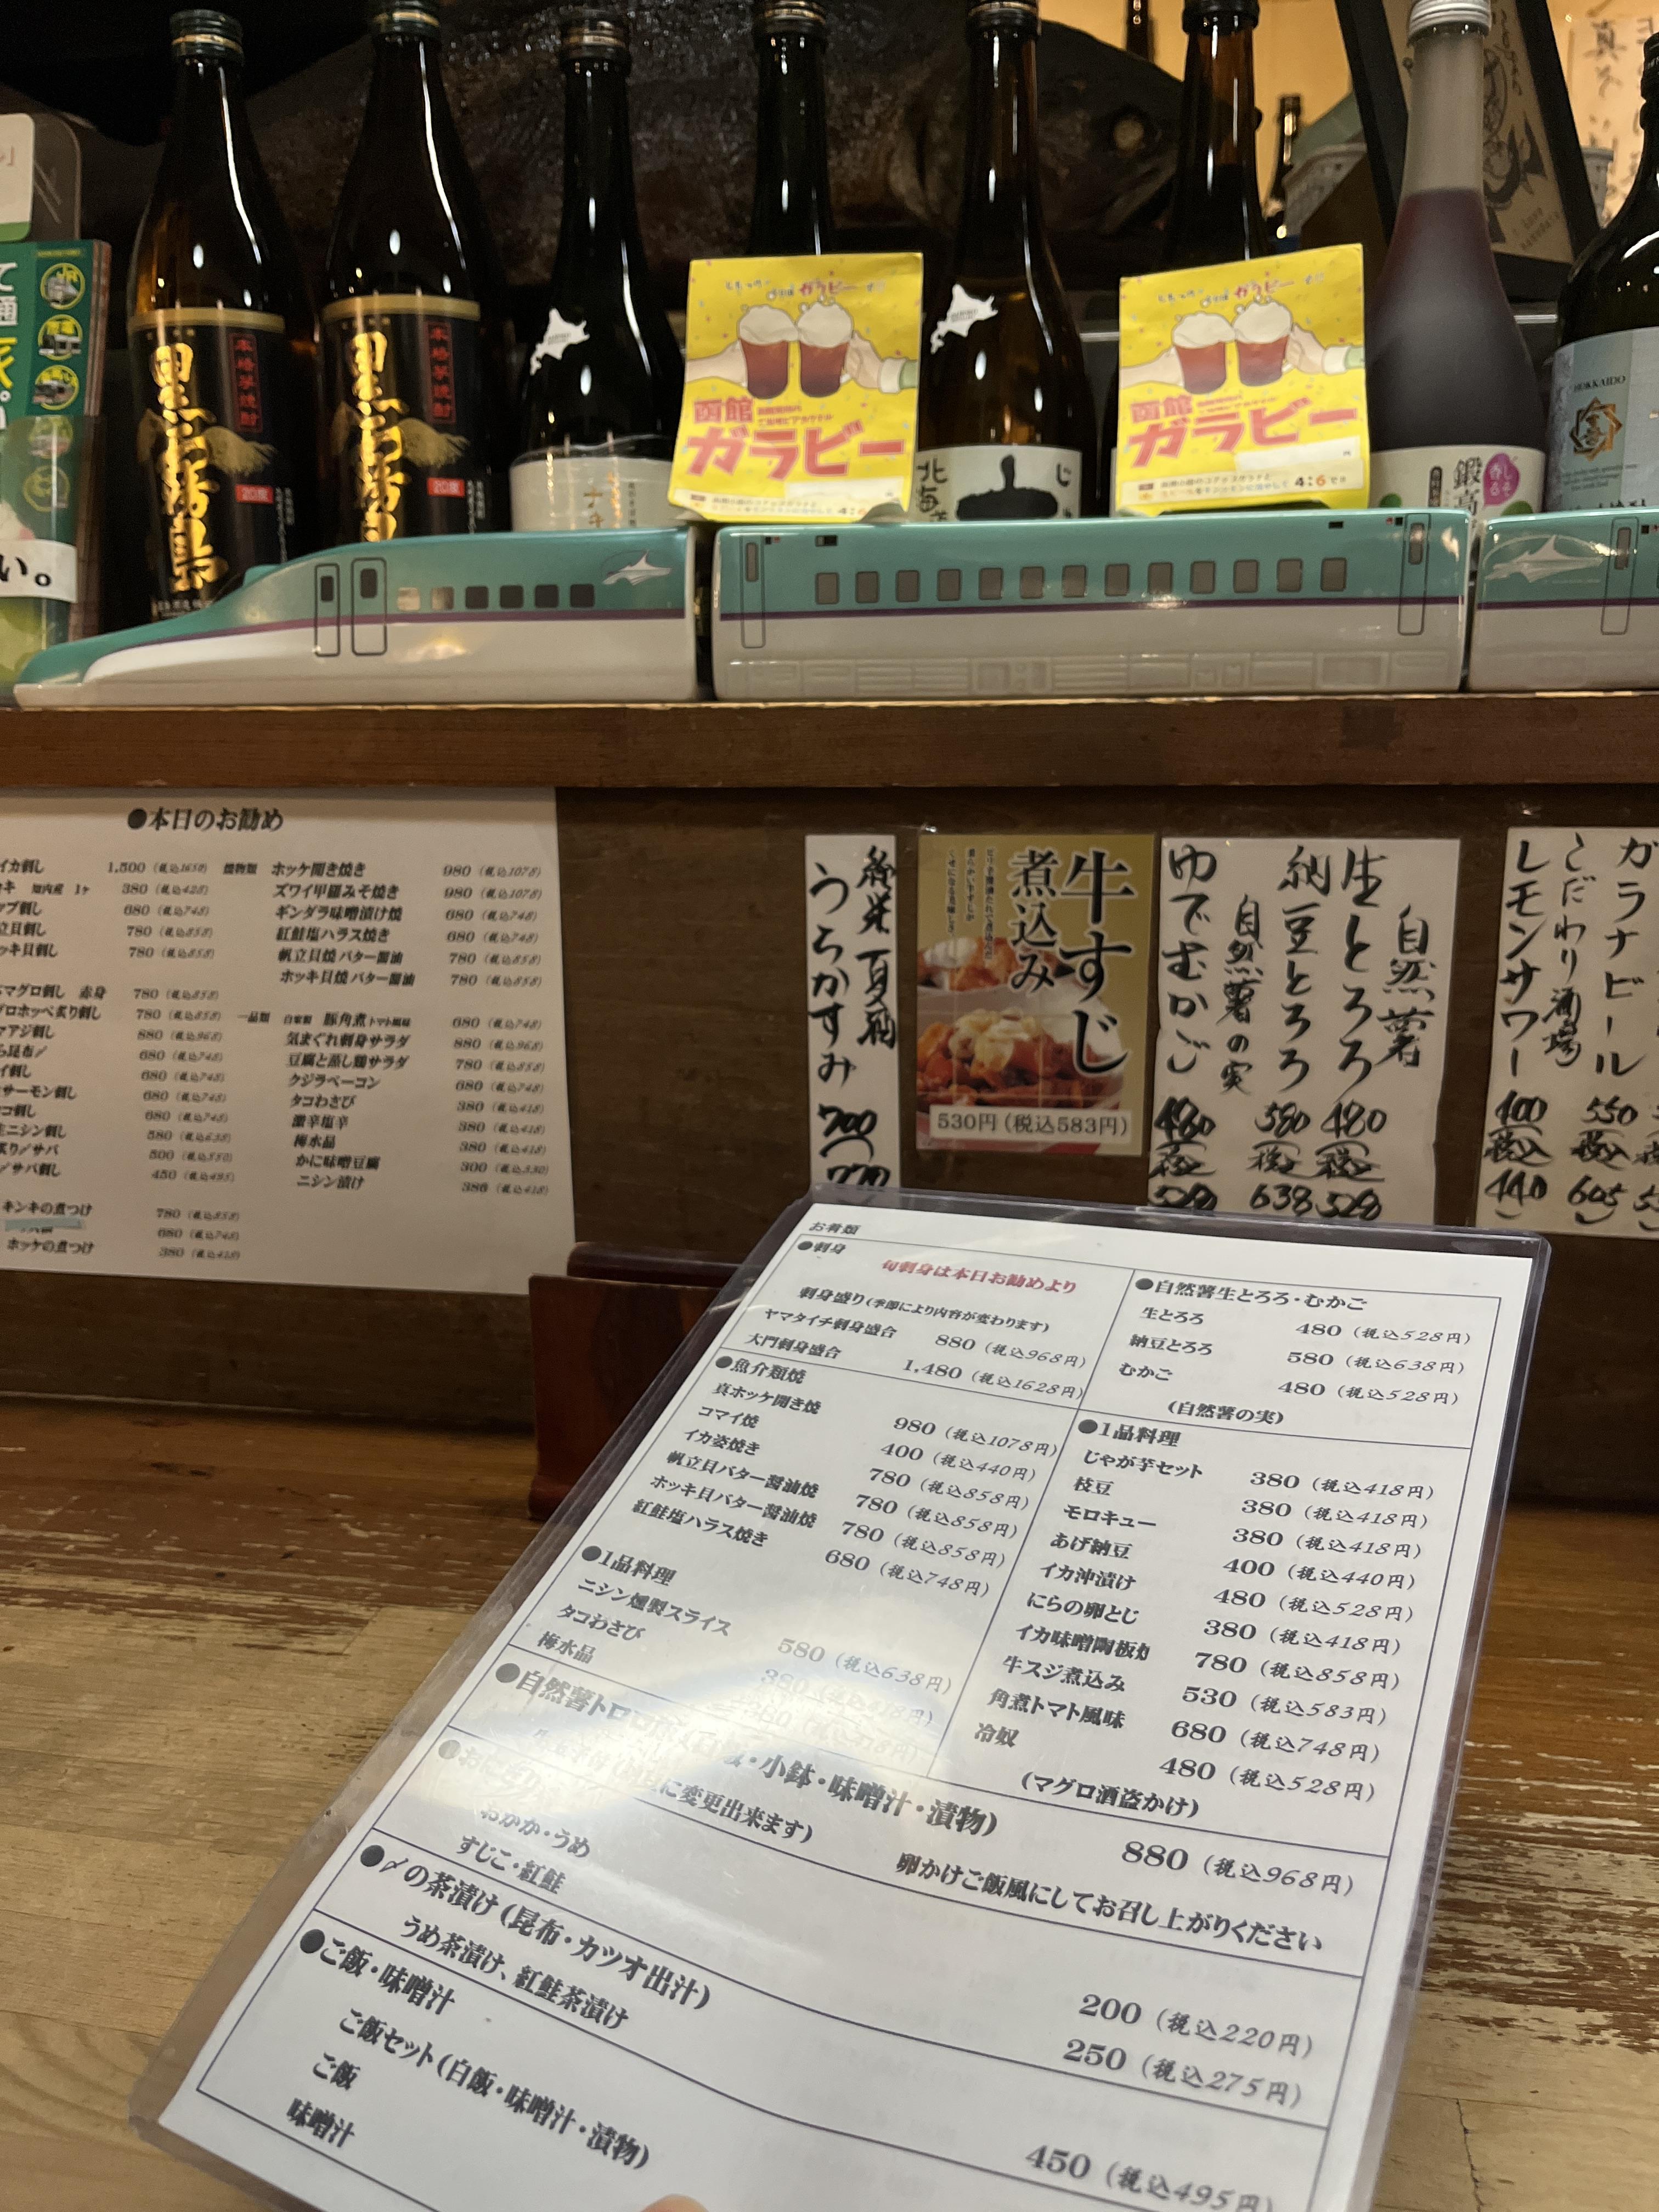 い。
黒霧島
本格芋焼酎
20度
黒霧島
本格芋焼酎
20度
函館
ガラビー
4:6
函館
ガラビー
4:6
北海
じ
鍛高
HOKKAIDO
●本日のお勧め
イカ刺し 1,500 (税込1650)
知内産 1ヶ 380 (税込428)
680 (税込748)
立貝刺し 780 (税込858)
ッキ貝刺し 780 (税込858)
マグロ刺し 赤身 780 (税込858)
グロホッペ炙り刺し 780 (税込858)
アジ刺し 880 (税込968)
680 (税込748)
680 (税込748)
サーモン刺し 680 (税込748)
コ刺し 680 (税込748)
ニシン刺し 580 (税込638)
500 (税込550)
サバ刺し 450 (税込495)
キンキの煮つけ 780 (税込858)
680 (税込748)
ホッケの煮つけ 380 (税込418)
焼物類 ホッケ開き焼き 980 (税込1078)
ズワイ甲羅みそ焼き 980 (税込1078)
ギンダラ味噌漬け焼 680 (税込748)
紅鮭塩ハラス焼き 680 (税込748)
帆立貝焼 バター醤油 780 (税込858)
ホッキ貝焼 バター醤油 780 (税込858)
一品類 自家製 豚角煮 トマト風味 680 (税込748)
気まぐれ刺身サラダ 880 (税込968)
豆腐と蒸し鶏サラダ 780 (税込858)
クジラベーコン 680 (税込748)
タコわさび 380 (税込418)
激辛塩辛 380 (税込418)
梅水晶 380 (税込418)
かに味噌豆腐 300 (税込330)
ニシン漬け 380 (税込418)
夏酒
うらかすみ
700
770
牛すじ
煮込み
530円(税込583円)
自然薯
生とろろ
480
税込
528
納豆とろろ
580
税込
638
自然薯の実
ゆでむかご
480
税込
528
ガラナビール
550
税込
605
こだわり酒場
レモンサワー
400
税込
440
お肴類
●刺身
旬刺身は本日お勧めより
刺身盛り(季節により内容が変わります)
ヤマタイチ刺身盛合 880 (税込968円)
大門刺身盛合 1,480 (税込1628円)
●魚介類焼
真ホッケ開き焼 980 (税込1078円)
コマイ焼 400 (税込440円)
イカ姿焼き 780 (税込858円)
帆立貝バター醤油焼 780 (税込858円)
ホッキ貝バター醤油焼 780 (税込858円)
紅鮭塩ハラス焼き 680 (税込748円)
●1品料理
ニシン燻製スライス 580 (税込638円)
タコわさび 380 (税込418円)
梅水晶 380
●自然薯生とろろ・むかご
生とろろ 480 (税込528円)
納豆とろろ 580 (税込638円)
むかご 480 (税込528円)
(自然薯の実)
●1品料理
じゃが芋セット 380 (税込418円)
枝豆 380 (税込418円)
モロキュー 380 (税込418円)
あげ納豆 400 (税込440円)
イカ沖漬け 480 (税込528円)
にらの卵とじ 380 (税込418円)
イカ味噌陶板焼 780 (税込858円)
牛スジ煮込み 530 (税込583円)
角煮トマト風味 680 (税込748円)
冷奴 480 (税込528円)
(マグロ酒盗かけ)
●自然薯トロロ ・小鉢・味噌汁・漬物) 880 (税込968円)
に変更出来ます) 卵かけご飯風にしてお召し上がりください
●お
おかか・うめ 200 (税込220円)
すじこ・紅鮭 250 (税込275円)
●〆の茶漬け(昆布・カツオ出汁)
うめ茶漬け、紅鮭茶漬け 450 (税込495円)
●ご飯・味噌汁
ご飯セット(白飯・味噌汁・漬物)
ご飯
味噌汁